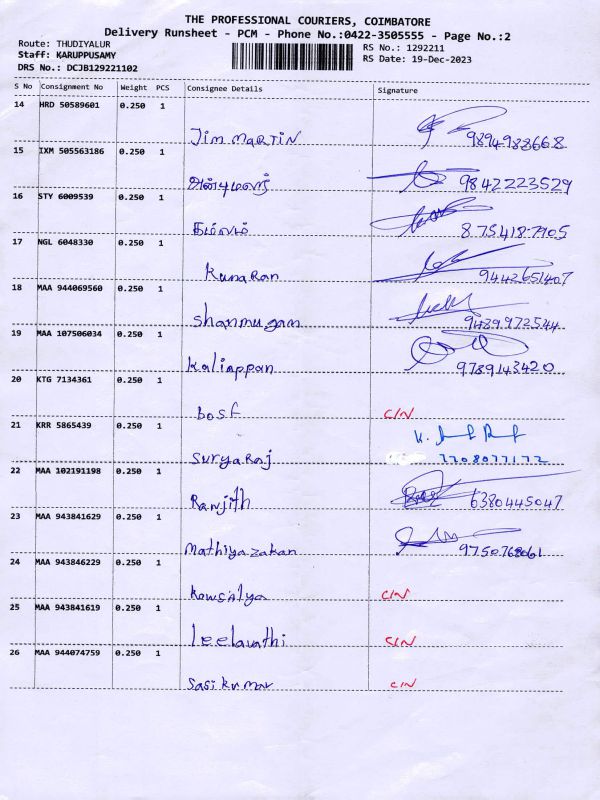 THE PROFESSIONAL COURIERS, COIMBATORE
Delivery Runsheet - PCM - Phone No.:0422-3505555 - Page No.:2
Route: THUDIYALUR RS No.: 1292211
Staff: KARUPPUSAMY RS Date: 19-Dec-2023
DRS No.: DCJB129221102
S No Consignment No Weight PCS Consignee Details Signature
14 HRD 50589601 0.250 1
Jim MARTIN 9894988668
15 IXM 505563186 0.250 1
9842223529
16 STY 6009539 0.250 1
கமலம் 8754187905
17 NGL 6048330 0.250 1
Kunaran 9442651407
18 MAA 944069560 0.250 1
Shanmugam 9489972544
19 MAA 107506034 0.250 1
Kaliappan 9789143420
20 KTG 7134361 0.250 1
bose C/N
21 KRR 5865439 0.250 1
Suryaraj 7708077172
22 MAA 102191198 0.250 1
Ranjith 6380445047
23 MAA 943841629 0.250 1
Mathiyazakan 9750768061
24 MAA 943846229 0.250 1
Kowsalya C/N
25 MAA 943841619 0.250 1
leelavathi C/N
26 MAA 944074759 0.250 1
Sasikumar C/N